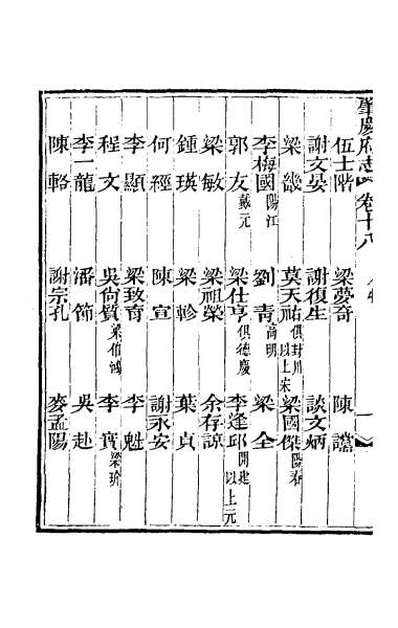 肇慶府志 卷十八 人物
伍士階 梁夢奇 陳讜
謝文晏 謝復生 談文炳
梁畿 莫天祐俱封川以上宋 梁國傑陽春
李梅國陽江 劉青高明 梁全
郭友戴元 梁仕亨俱德慶 李逢邱開建以上元
梁敏 梁祖榮 余存諒
鍾瑛 梁軫 葉貞
何經 陳宣 謝永安
李顯 梁致育 李魁
程文 吳尙質梁伯鴻 李寳梁玠
李一龍 潘節 吳赴
陳輅 謝宗孔 麥孟陽